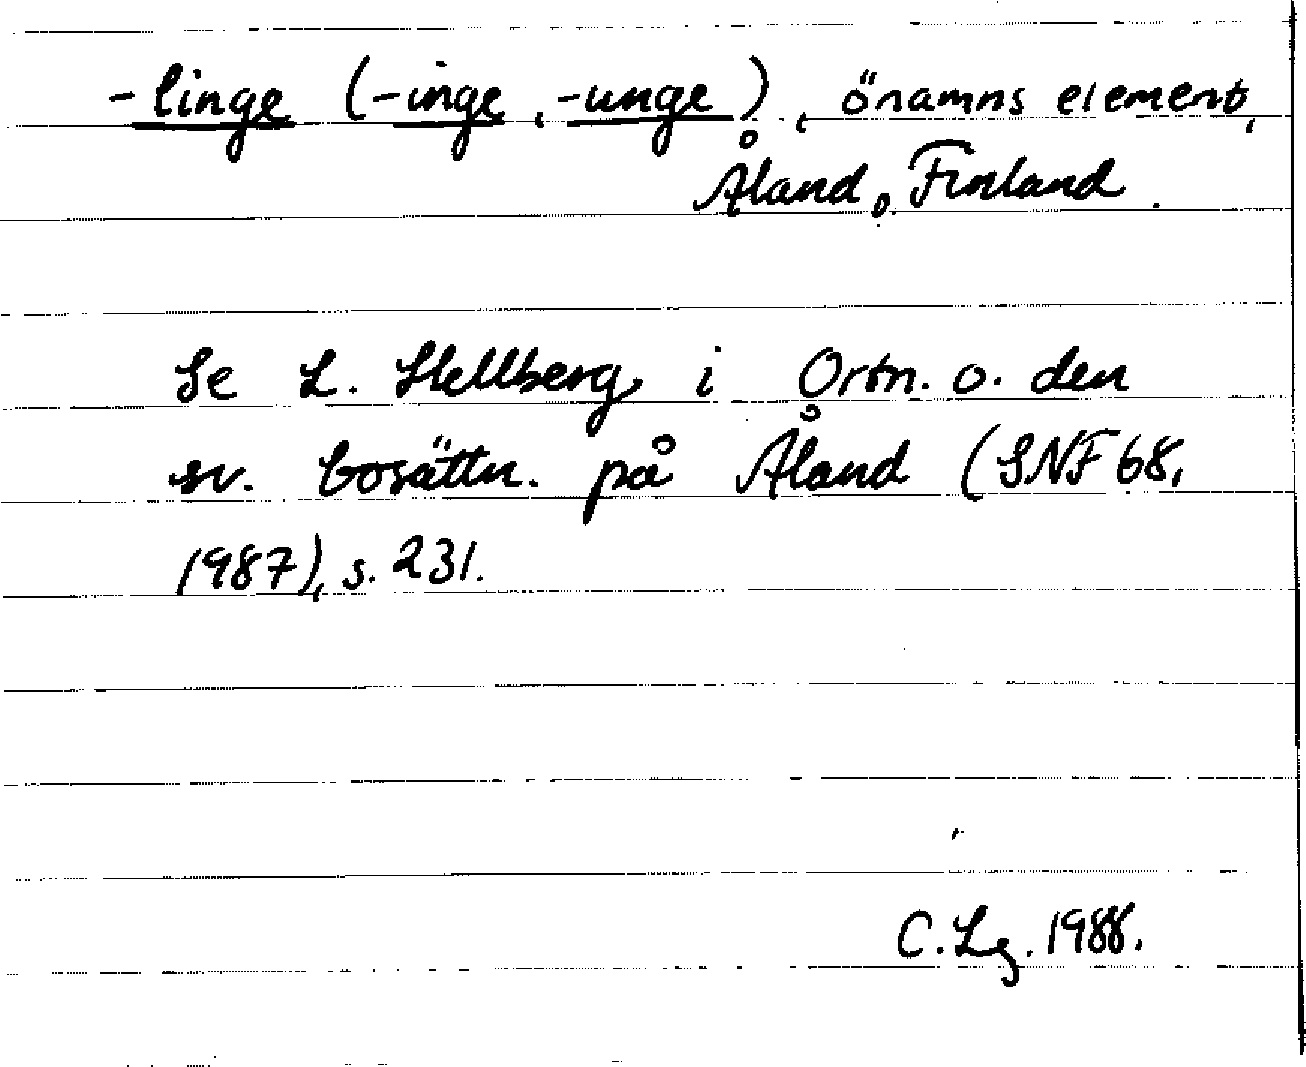 -linge (-inge, -unge), önamns element,
Åland, Finland.
Se L. Hellberg i Ortn. o. den
sv. bosättn. på Åland (SNF 68,
1987), s. 231.
C. Lg. 1988.